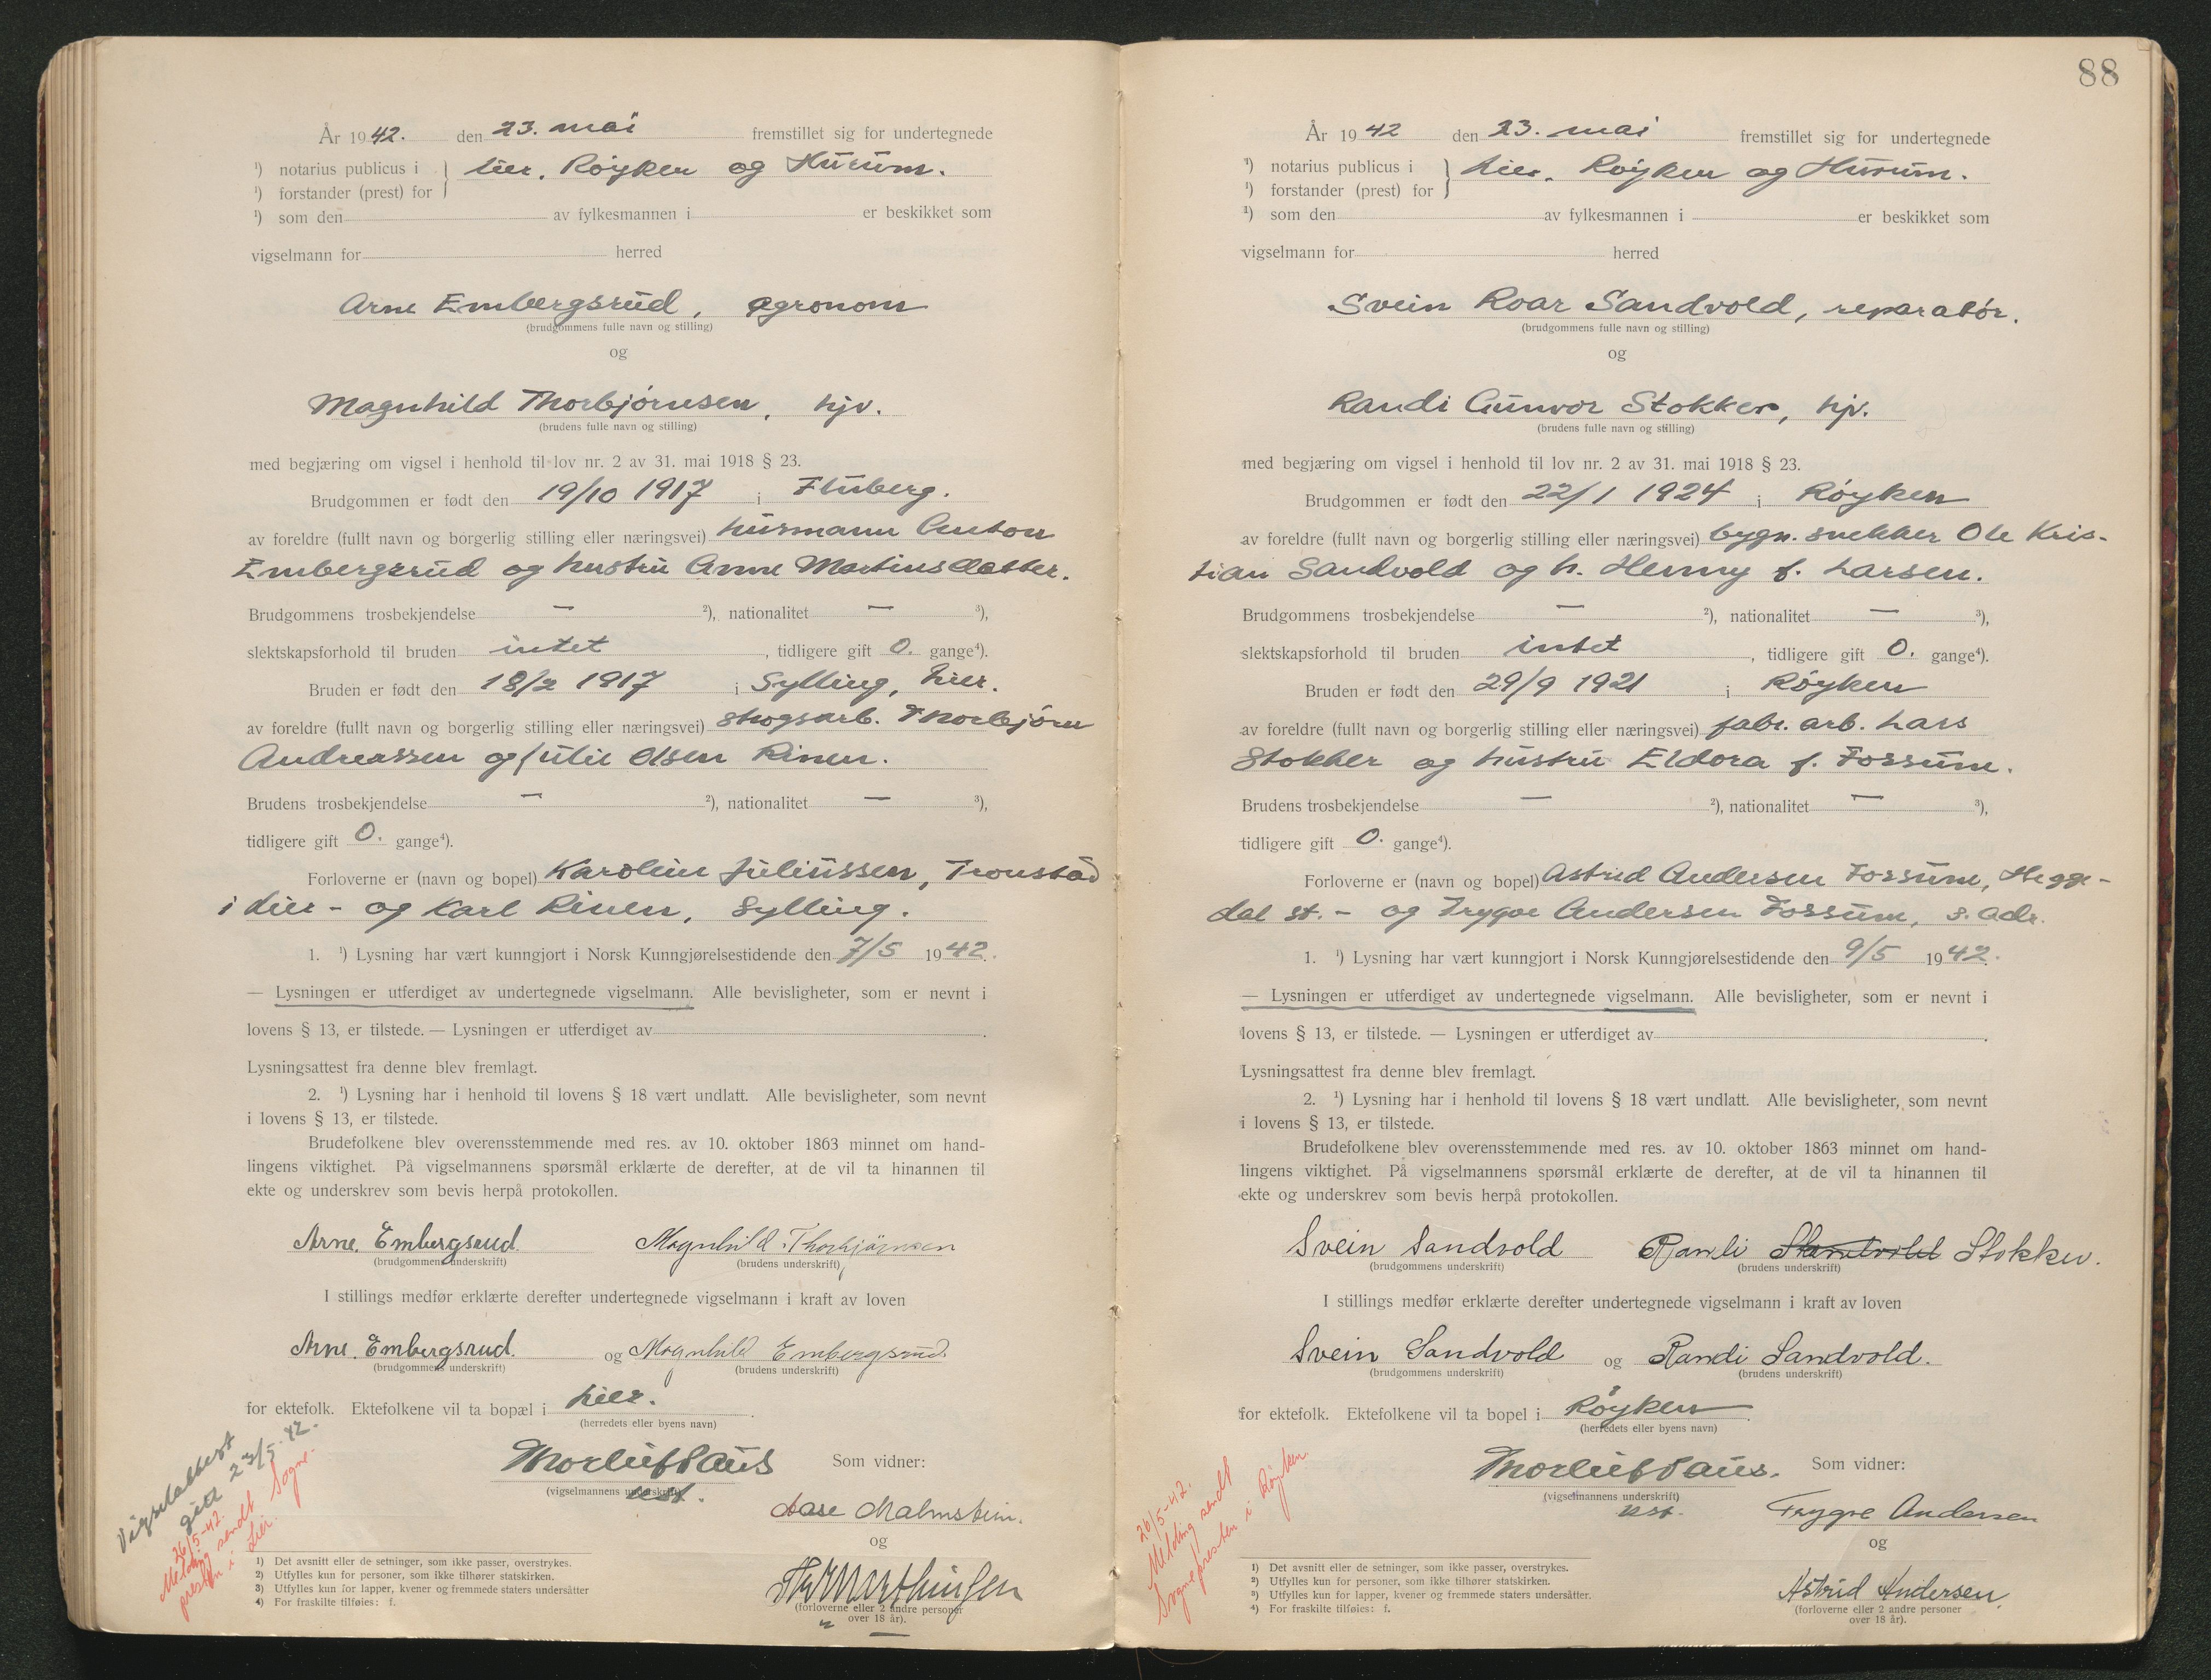 År 1942. den 23. mai fremstillet sig for undertegnede
¹) notarius publicus i } Lier, Røyken og Hurum.
¹) forstander (prest) for
¹) som den av fylkesmannen i er beskikket som
vigselmann for herred
Arne Embergsrud, agronom
(brudgommens fulle navn og stilling)
og
Magnhild Thorbjørnsen, hjv.
(brudens fulle navn og stilling)
med begjæring om vigsel i henhold til lov nr. 2 av 31. mai 1918 § 23.
Brudgommen er født den 19/10 1917 i Fluberg.
av foreldre (fullt navn og borgerlig stilling eller næringsvei) husmann Anton
Embergsrud og hustru Anne Martinsdatter.
Brudgommens trosbekjendelse — ²), nationalitet — ³),
slektskapsforhold til bruden intet, tidligere gift 0. gange⁴).
Bruden er født den 18/2 1917 i Sylling, Lier.
av foreldre (fullt navn og borgerlig stilling eller næringsvei) skogsarb. Thorbjørn
Andreassen og Julie Olsen Rinen.
Brudens trosbekjendelse — ²), nationalitet — ³),
tidligere gift 0. gange⁴).
Forloverne er (navn og bopel) Karolin Juliussen, Tronstad
i Lier - og Karl Rinen, Sylling.
1. ¹) Lysning har vært kunngjort i Norsk Kunngjørelsestidende den 7/5 1942.
— Lysningen er utferdiget av undertegnede vigselmann. Alle bevisligheter, som er nevnt i
lovens § 13, er tilstede. — Lysningen er utferdiget av .
Lysningsattest fra denne blev fremlagt.
2. ¹) Lysning har i henhold til lovens § 18 vært undlatt. Alle bevisligheter, som nevnt
i lovens § 13, er tilstede.
Brudefolkene blev overensstemmende med res. av 10. oktober 1863 minnet om hand-
lingens viktighet. På vigselmannens spørsmål erklærte de derefter, at de vil ta hinannen til
ekte og underskrev som bevis herpå protokollen.
Arne Embergsrud. Magnhild Thorbjørnsen
(brudgommens underskrift) (brudens underskrift)
I stillings medfør erklærte derefter undertegnede vigselmann i kraft av loven
Arne Embergsrud. og Magnhild Embergsrud.
(brudgommens underskrift) (brudens underskrift)
for ektefolk. Ektefolkene vil ta bopæl i Lier.
(herredets eller byens navn)
Vigselattest
gitt 23/5-42.
26/5-42.
Melding sendt Sogne-
presten i Lier.
Thorleif Paus Som vidner:
(vigselmannens underskrift)
est.
Aase Malmstein.
og
Marthinsen
(forloverne eller 2 andre personer
over 18 år).
1) Det avsnitt eller de setninger, som ikke passer, overstrykes.
2) Utfylles kun for personer, som ikke tilhører statskirken.
3) Utfylles kun for lapper, kvener og fremmede staters undersåtter
4) For fraskilte tilføies: f.
88
År 1942 den 23. mai fremstillet sig for undertegnede
¹) notarius publicus i } Lier, Røyken og Hurum.
¹) forstander (prest) for
¹) som den av fylkesmannen i er beskikket som
vigselmann for herred
Svein Roar Sandvold, reparatør.
(brudgommens fulle navn og stilling)
og
Randi Gunvor Stokker, hjv.
(brudens fulle navn og stilling)
med begjæring om vigsel i henhold til lov nr. 2 av 31. mai 1918 § 23.
Brudgommen er født den 22/1 1924 i Røyken
av foreldre (fullt navn og borgerlig stilling eller næringsvei) bygn. snekker Ole Kris-
tian Sandvold og h. Henny f. Larsen.
Brudgommens trosbekjendelse — ²), nationalitet — ³),
slektskapsforhold til bruden intet, tidligere gift 0. gange⁴).
Bruden er født den 29/9 1921 i Røyken
av foreldre (fullt navn og borgerlig stilling eller næringsvei) fabr. arb. Lars
Stokker og hustru Eldora f. Fossum.
Brudens trosbekjendelse — ²), nationalitet — ³),
tidligere gift 0. gange⁴).
Forloverne er (navn og bopel) Astrid Andersen Fossum, Hegge-
dal st. - og Trygve Andersen Fossum, s. adr.
1. ¹) Lysning har vært kunngjort i Norsk Kunngjørelsestidende den 9/5 1942.
— Lysningen er utferdiget av undertegnede vigselmann. Alle bevisligheter, som er nevnt i
lovens § 13, er tilstede. — Lysningen er utferdiget av .
Lysningsattest fra denne blev fremlagt.
2. ¹) Lysning har i henhold til lovens § 18 vært undlatt. Alle bevisligheter, som nevnt
i lovens § 13, er tilstede.
Brudefolkene blev overensstemmende med res. av 10. oktober 1863 minnet om hand-
lingens viktighet. På vigselmannens spørsmål erklærte de derefter, at de vil ta hinannen til
ekte og underskrev som bevis herpå protokollen.
Svein Sandvold Randi Sandvold Stokker.
(brudgommens underskrift) (brudens underskrift)
I stillings medfør erklærte derefter undertegnede vigselmann i kraft av loven
Svein Sandvold og Randi Sandvold.
(brudgommens underskrift) (brudens underskrift)
for ektefolk. Ektefolkene vil ta bopel i Røyken
(herredets eller byens navn)
26/5-42.
Melding sendt
Sognepresten i Røyken.
Thorleif Paus. Som vidner:
(vigselmannens underskrift)
est.
Trygve Andersen
og
Astrid Andersen.
(forloverne eller 2 andre personer
over 18 år).
1) Det avsnitt eller de setninger, som ikke passer, overstrykes.
2) Utfylles kun for personer, som ikke tilhører statskirken.
3) Utfylles kun for lapper, kvener og fremmede staters undersåtter.
4) For fraskilte tilføies: f.